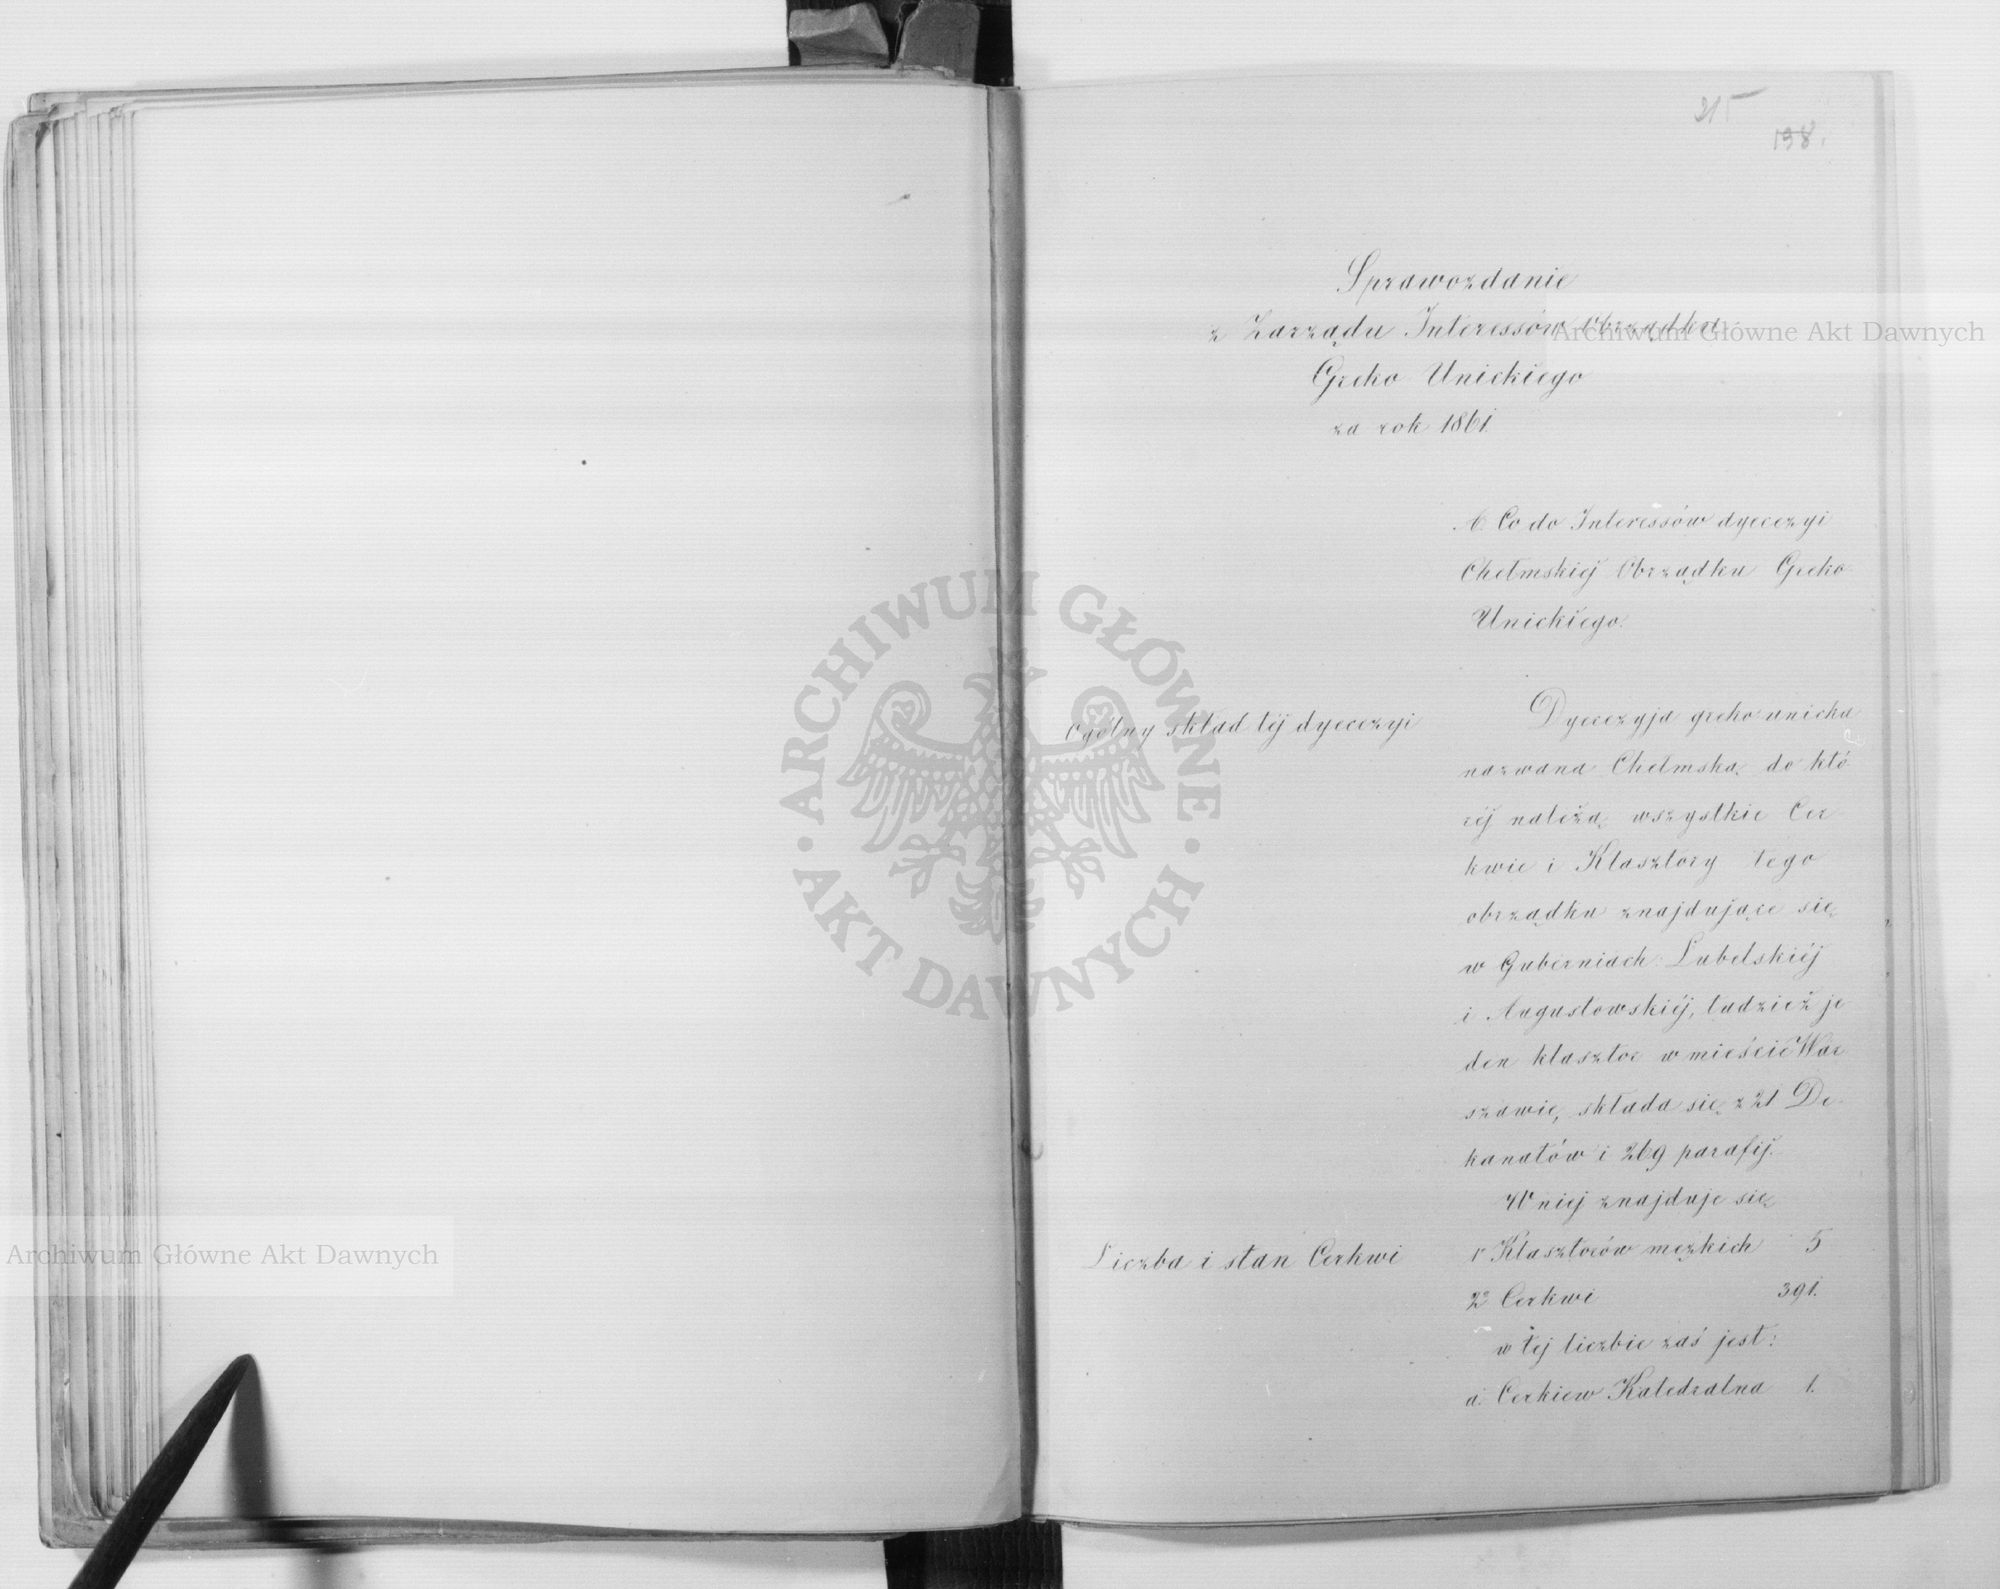 215
198.
Sprawozdanie
z Zarządu Interessów Obrządku
Greko Unickiego
za rok 1861.
A. Co do Interessów dyecezyi
Chełmskiéj Obrządku Greko
Unickiego.
Ogólny skład téj dyecezyi
Dyecezyja greko unicka
nazwana Chełmską, do któ
réj należą wszystkie Cer
kwie i Klasztory tego
obrządku znajdujące się
w Guberniach: Lubelskiéj
i Augustowskiéj, tudzież je
den klasztor w mieście War
szawie, składa się z 21 De-
kanatów i 269 parafij.
W niej znajduje się
Liczba i stan Cerkwi
1º Klasztorów męzkich 5
2º Cerkwi 391.
w téj liczbie zaś jest:
a. Cerkiew Katedralna 1.
Archiwum Główne Akt Dawnych
Archiwum Główne Akt Dawnych
ARCHIWUM GŁÓWNE
AKT DAWNYCH